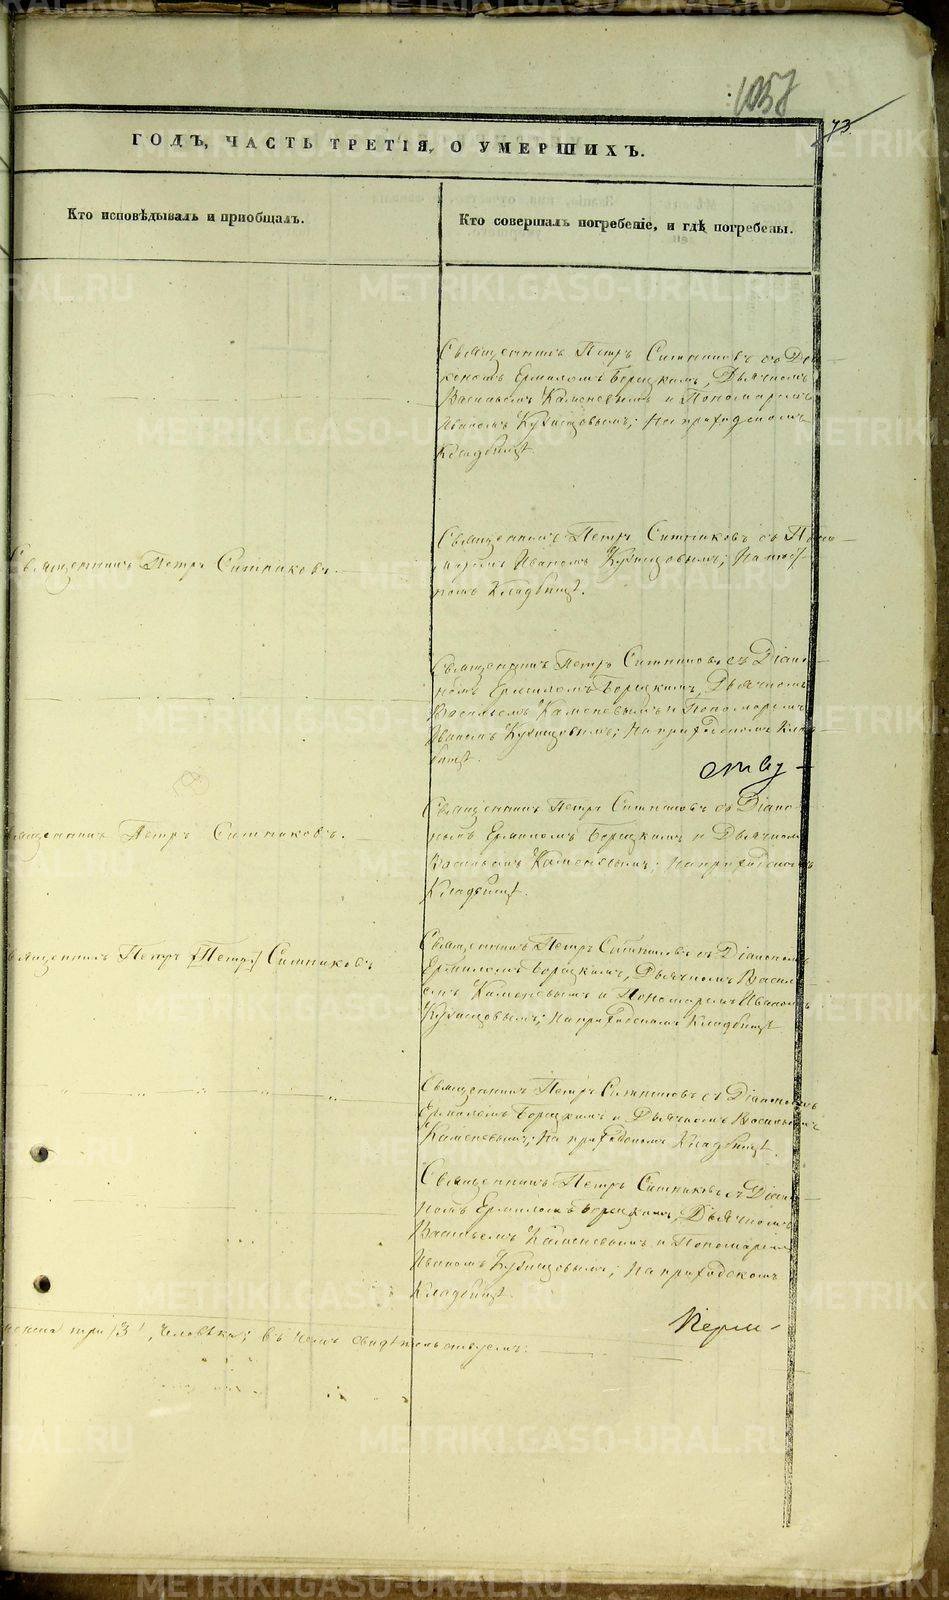 1057
73.
ГОДЪ, ЧАСТЬ ТРЕТІЯ, О УМЕРШИХЪ.
Кто исповѣдывалъ и пріобщалъ.
Кто совершалъ погребеніе, и гдѣ погребены.
Священникъ Петръ Ситниковъ съ Діа-
кономъ Ермиломъ Борецкимъ, Дьячкомъ
Васильемъ Каменевымъ и Пономаремъ
Иваномъ Кузнецовымъ; На приходскомъ
Кладбищѣ.
Священникъ Петръ Ситниковъ.
Священникъ Петръ Ситниковъ съ Поно-
маремъ Иваномъ Кузнецовымъ;
Кладбищѣ.
Священникъ Петръ Ситниковъ съ Діако-
номъ Ермиломъ Борецкимъ, Дьячкомъ
Васильемъ Каменевымъ и Пономаремъ
Иваномъ Кузнецовымъ; На приходскомъ Клад-
бищѣ.
Священникъ Петръ Ситниковъ.
Священникъ Петръ Ситниковъ съ Діако-
номъ Ермиломъ Борецкимъ и Дьячкомъ
Васильемъ Каменевымъ; На приходскомъ
Кладбищѣ.
Священникъ Петръ (Петръ) Ситниковъ
Священникъ Петръ Ситниковъ съ Діакономъ
Ермиломъ Борецкимъ, Дьячкомъ Василь-
емъ Каменевымъ и Пономаремъ Иваномъ
Кузнецовымъ; На приходскомъ Кладбищѣ
Священникъ Петръ Ситниковъ съ Діакономъ
Ермиломъ Борецкимъ и Дьячкомъ Васильемъ
Каменевымъ; На приходскомъ Кладбищѣ.
Священникъ Петръ Ситниковъ съ Діако-
номъ Ермиломъ Борецкимъ, Дьячкомъ
Васильемъ Каменевымъ и Пономаремъ
Иваномъ Кузнецовымъ; На приходскомъ
Кладбищѣ.
три /3/, человѣка; въ чемъ свидѣтельствуемъ:
METRIKI.GASO-URAL.RU